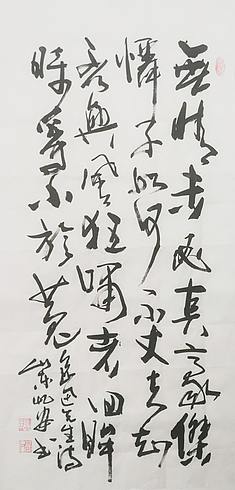 無情未必真豪傑
憐子如何不丈夫知
否興風狂嘯者回眸
時看小於菟
魯迅先生詩
書